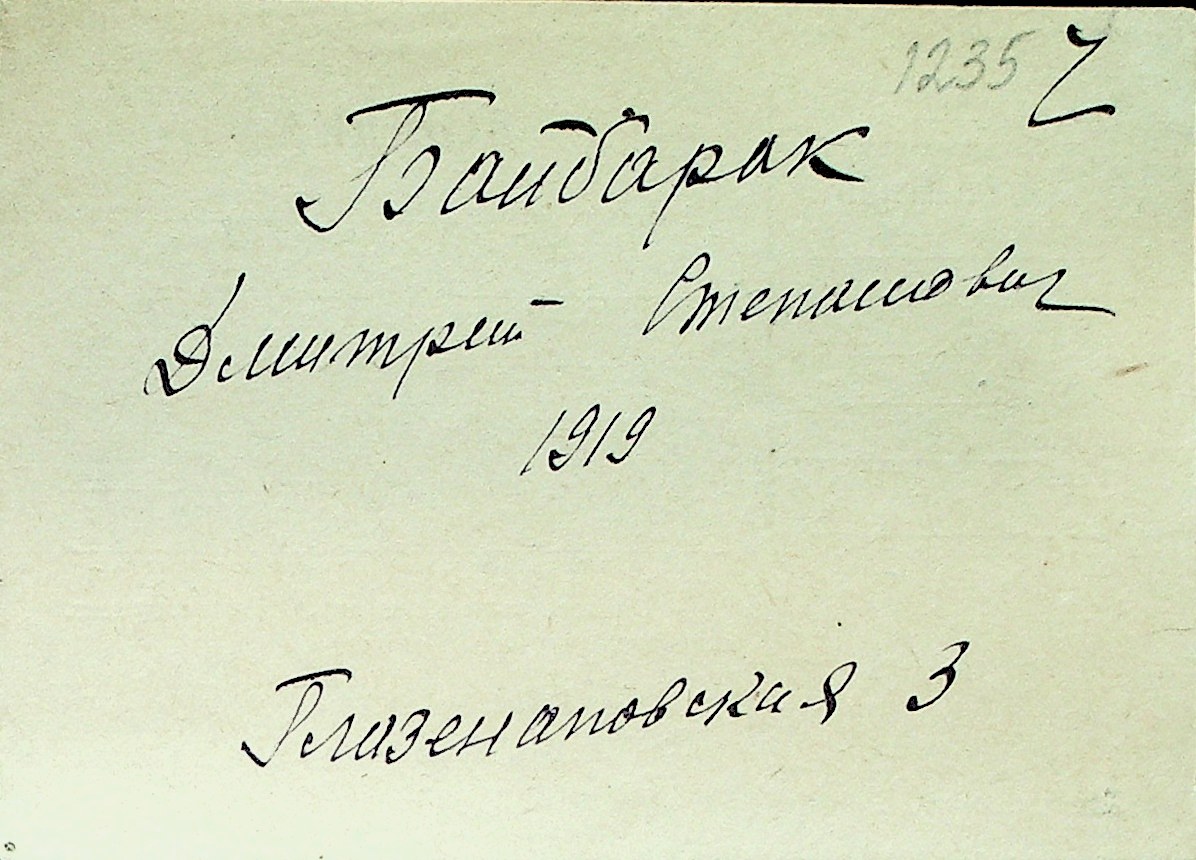 1235 Ч
Байбарак
Дмитрий Степанович
1919
Глазенаповская 3